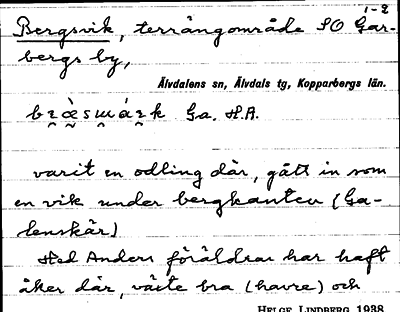 1-2
Bergsvik, terrängområde SO Gar-
bergs by,
Älvdalens sn, Älvdals tg, Kopparbergs län.
Ga. H.A.
varit en odling där, gått in som
en vik under bergkanten (Ga-
lenskär)
Hed Anders föräldrar har haft
åker där, växte bra (havre) och
HELGE LINDBERG 1938